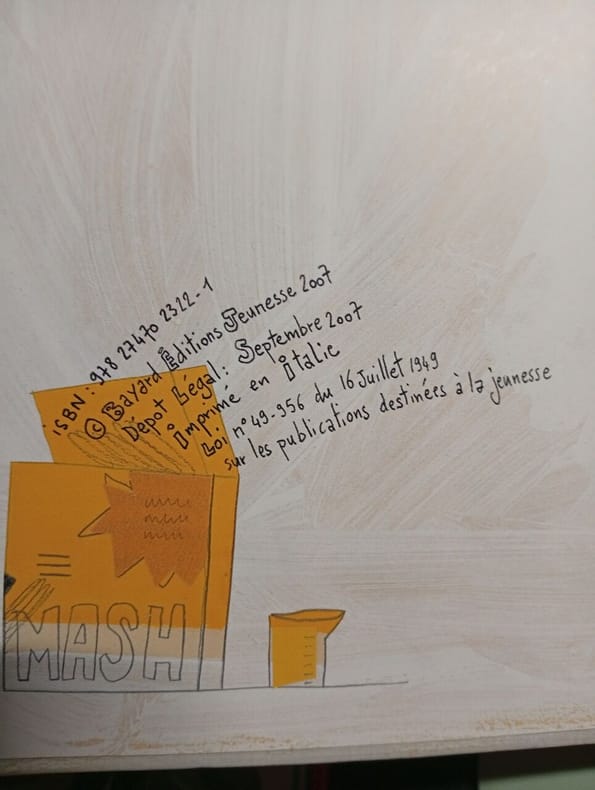 ISBN: 978 27470 2322-1
© Bayard Éditions Jeunesse 2007
Dépot Légal: Septembre 2007
Imprimé en Italie
Loi n° 49-956 du 16 Juillet 1949
sur les publications destinées à la jeunesse
MASH